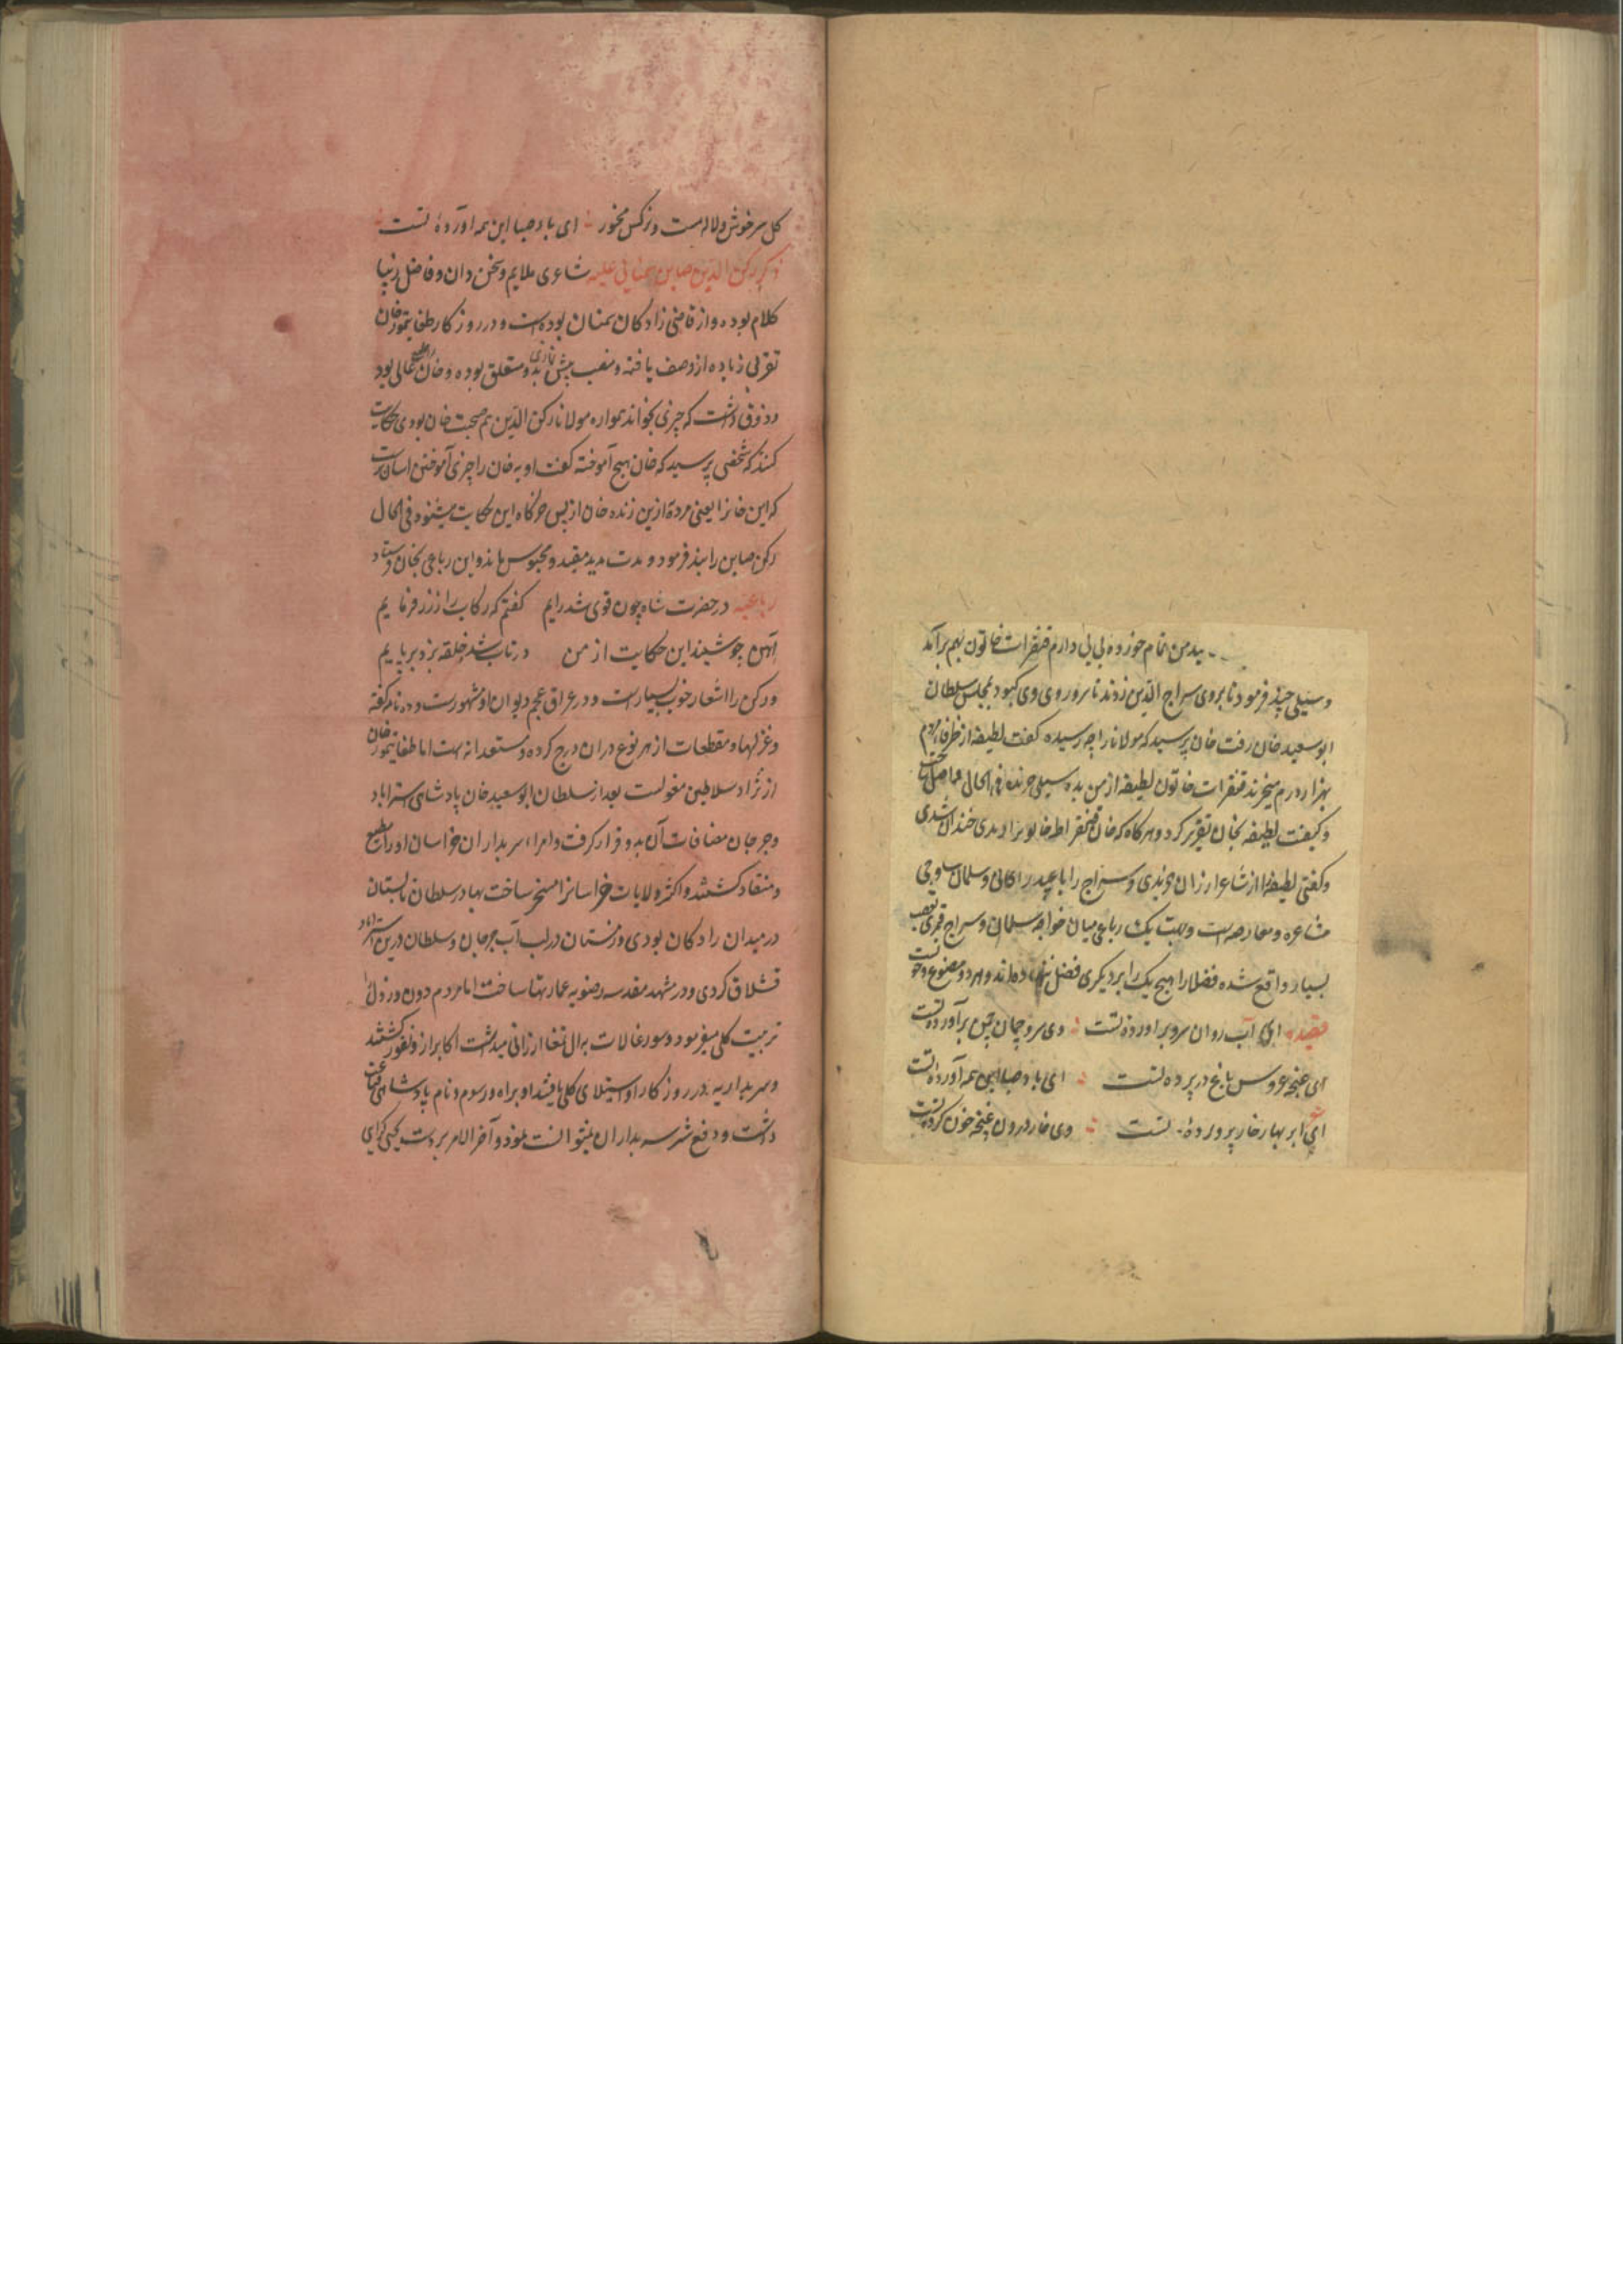 بید من تمام خورده بی بی دارم قنقرات خاتون بهم برآمد
و سیلی چند فرمود تا بروی سراج الدین زدند تا سر و روی وی کبود بمجلس سلطان
ابوسعید خان رفت خان پرسید که مولانا را چه رسیده کفت لطیفه از ظرفا مردم
بهزار درم میخرند قنقرات خاتون لطیفه از من بده سیلی خریده فی الحال
و کیفیت لطیفه بخان تقریر کرد و هرکاه که خان قنقرات خاتونرا دیدی خندان شدی
و کفتی لطیفه را از شاعر ارزان خریدی و سراج را با عبید زاکانی و سلمان ساوجی
مشاعره و معارضه است و بجهت یک رباعی میان خواجه سلمان و سراج قمری تعصب
بسیار واقع شده فضلا را هیچ یک را بر دیکری فضل ننهاده اند و هر دو مصنوع و خوبست
ای آب روان سرو برآورده تست وی سرو چمان چمن برآورده تست
ای غنچه عروس باغ در پرده تست ای باد صبا این همه آورده تست
ای ابر بهار خار پرورده تست وی خار درون غنچه خون کرده تست
کل سرخوش و لاله مست و نرکس مخمور ای باد صبا این همه آورده تست
ذکر رکن الدین صاین سمنانی علیه شاعری ملایم و سخن دان و فاضل زیبا
کلام بوده و از قاضی زادکان سمنان بوده است و در روزکار طغایتمور خان
تقربی زیاده از وصف یافته و منصب پیش نمازی بدو متعلق بوده و خان عالی بود
و ذوقی داشت که چیزی بخواند همواره مولانا رکن الدین هم صحبت خان بودی حکایت
کنند که شخصی پرسید که خان هیچ آموخته کفت او به خان را چیزی آموختن اسان نیست
که این خانرا یعنی مردۀ ازین زنده خان از پس خرکاه این حکایت میشنود فی الحال
رکن صاین را بند فرمود و مدت مدید مقید و محبوس ماند و این رباعی بخان فرستاد
رباعیه در حضرت شاه چون قوی شد رایم کفتم که رکاب را ز زر فرمایم
آهن چو شنید این حکایت از من در تاب شد و حلقه بزد بر پایم
و رکن را اشعار خوب بسیار است و در عراق عجم دیوان او مشهورست و ده نامه کفته
و غزلها و مقطعات از هر نوع دران درج کرده و مستعدانه است اما طغایتمور خان
از نژاد سلاطین مغولست بعد از سلطان ابوسعید خان پادشاهی استراباد
و جرجان مضافات آن بدو قرار کرفت و امراء سربداران خراسان او را مطیع
و منقاد کشتند و اکثر ولایات خراسانرا مسخر ساخت بهادر سلطان تابستان
در میدان رادکان بودی و زمستان در لب آب جرجان و سلطان درین استراباد
قشلاق کردی و در مشهد مقدسه رضویه عمارتها ساخت اما مردم دون و رذل را
تربیت کلی میفرمود و سورغالات به ال تمغا ارزانی میداشت اکابر ازو نفور کشتند
و سربداریه در روزکار او استیلای کلی یافتند او براه و رسوم و نام پادشاهی قناعت
داشت و دفع شر سربداران نمیتوانست نمود و آخر الامر بر دست یحیی کرابی